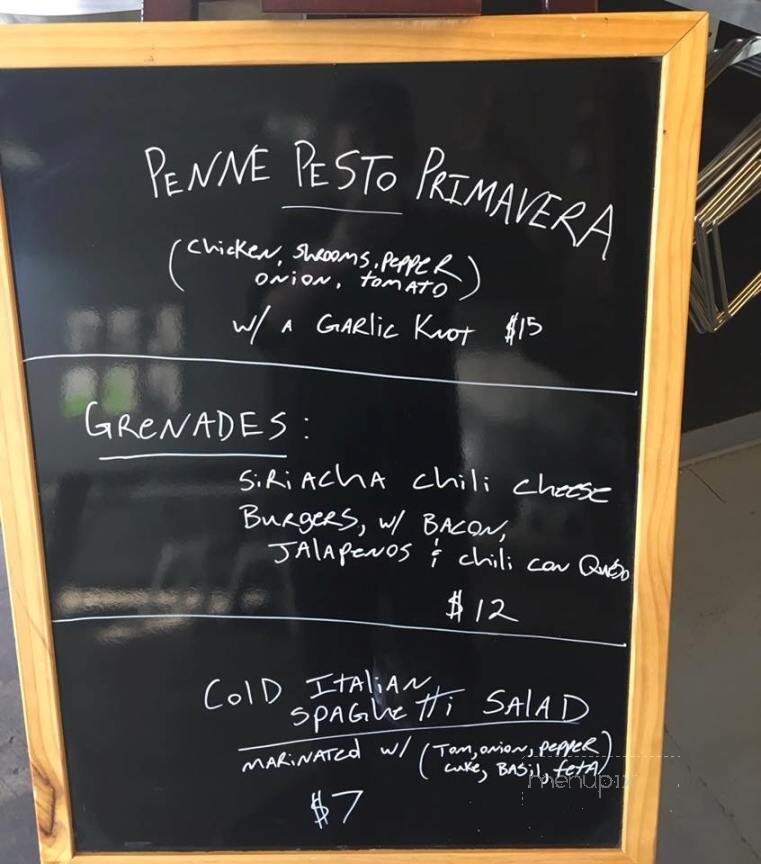 PENNE PESTO PRIMAVERA
(Chicken, Shrooms, Pepper
Onion, Tomato)
w/ A Garlic Knot $15
GRENADES:
SiRiACHA Chili Cheese
Burgers, w/ BACON,
JALAPENOS & Chili con Queso
$12
Cold Italian
Spaghetti Salad
MARiNATED w/ (Tom, onion, pepper
cuke, BASil, feta)
$7
menupix